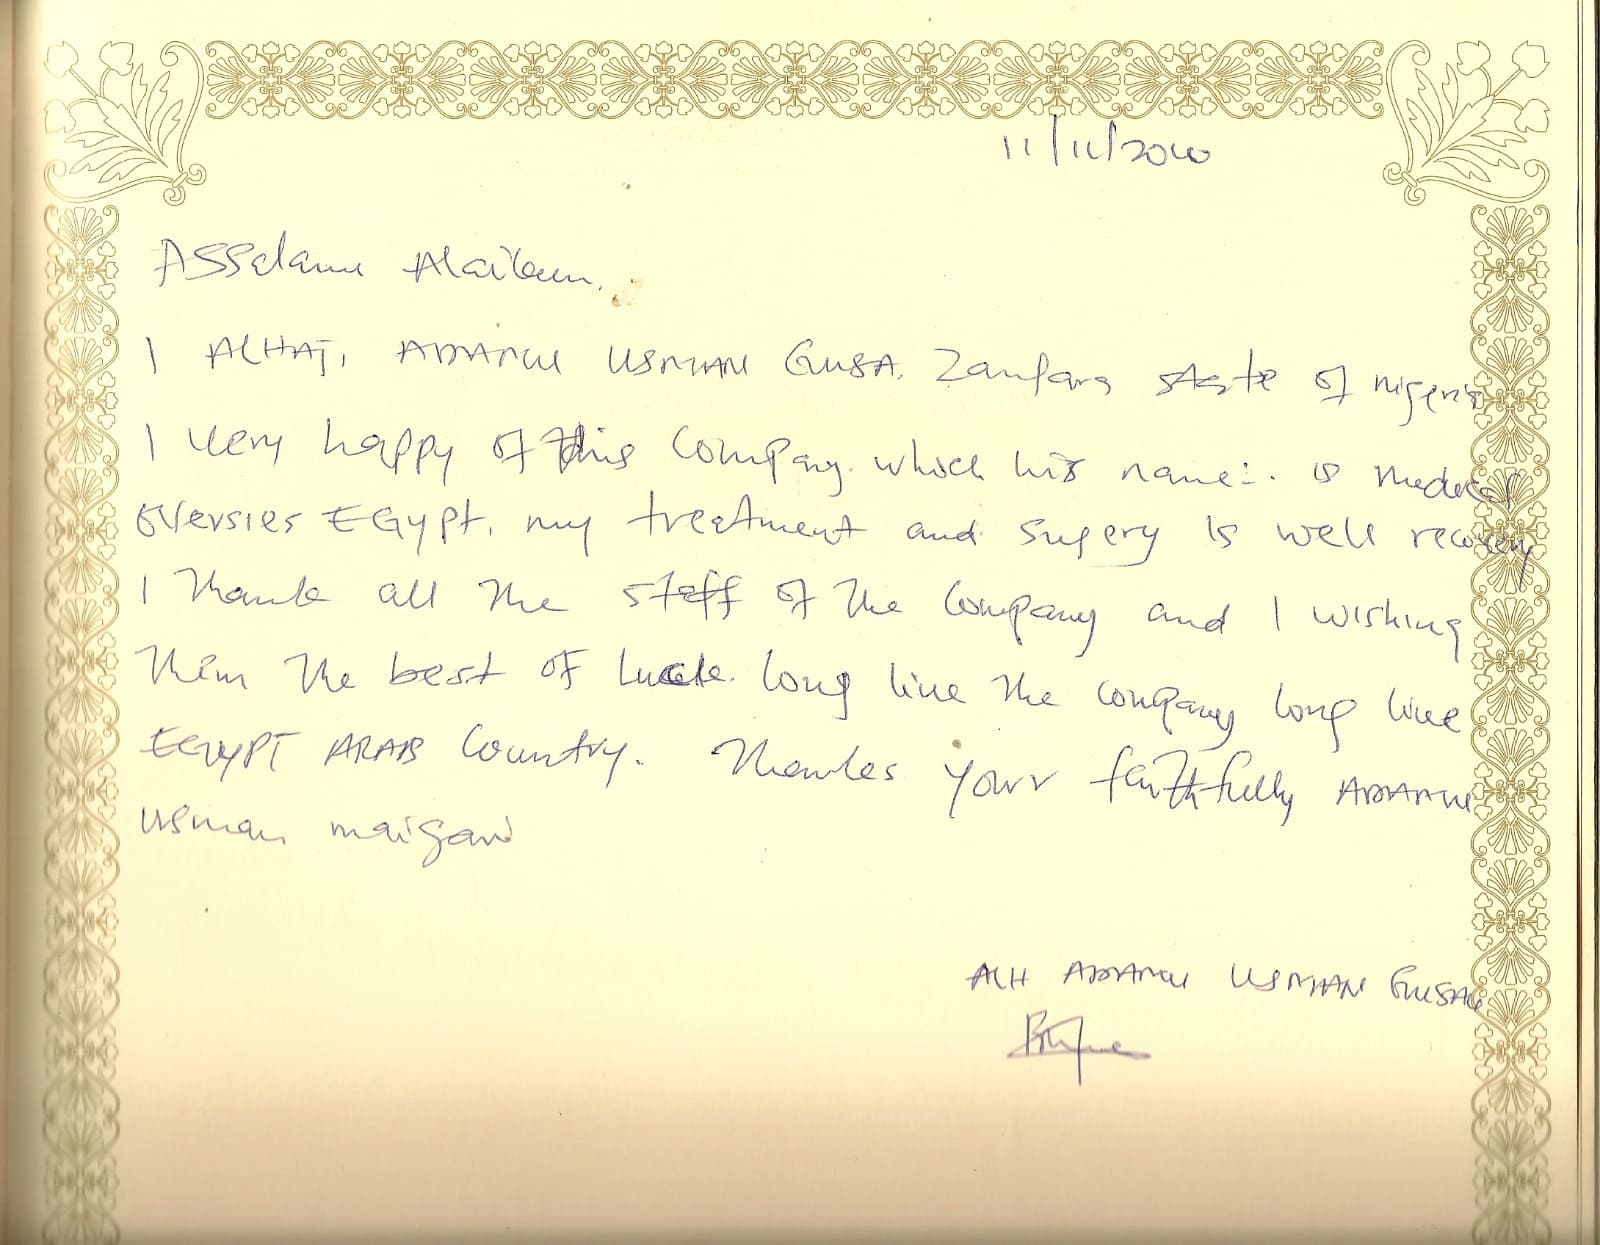 11/11/2010
Assalamu Alaikum.
I ALHAJ, ADAMU USMAN GUSA. Zamfara state of nigeria
I very happy of this Company. which his name:. is medical
oversies EGypt. my treatment and sugery is well recovery
I Thank all the staff of the Company and I wishing
Them The best of Luck. Long live The company long live
EGYPT ARAB Country. Thanks your faithfully ADAMU
usman maigari
ALH ADAMU USMAN GUSAU